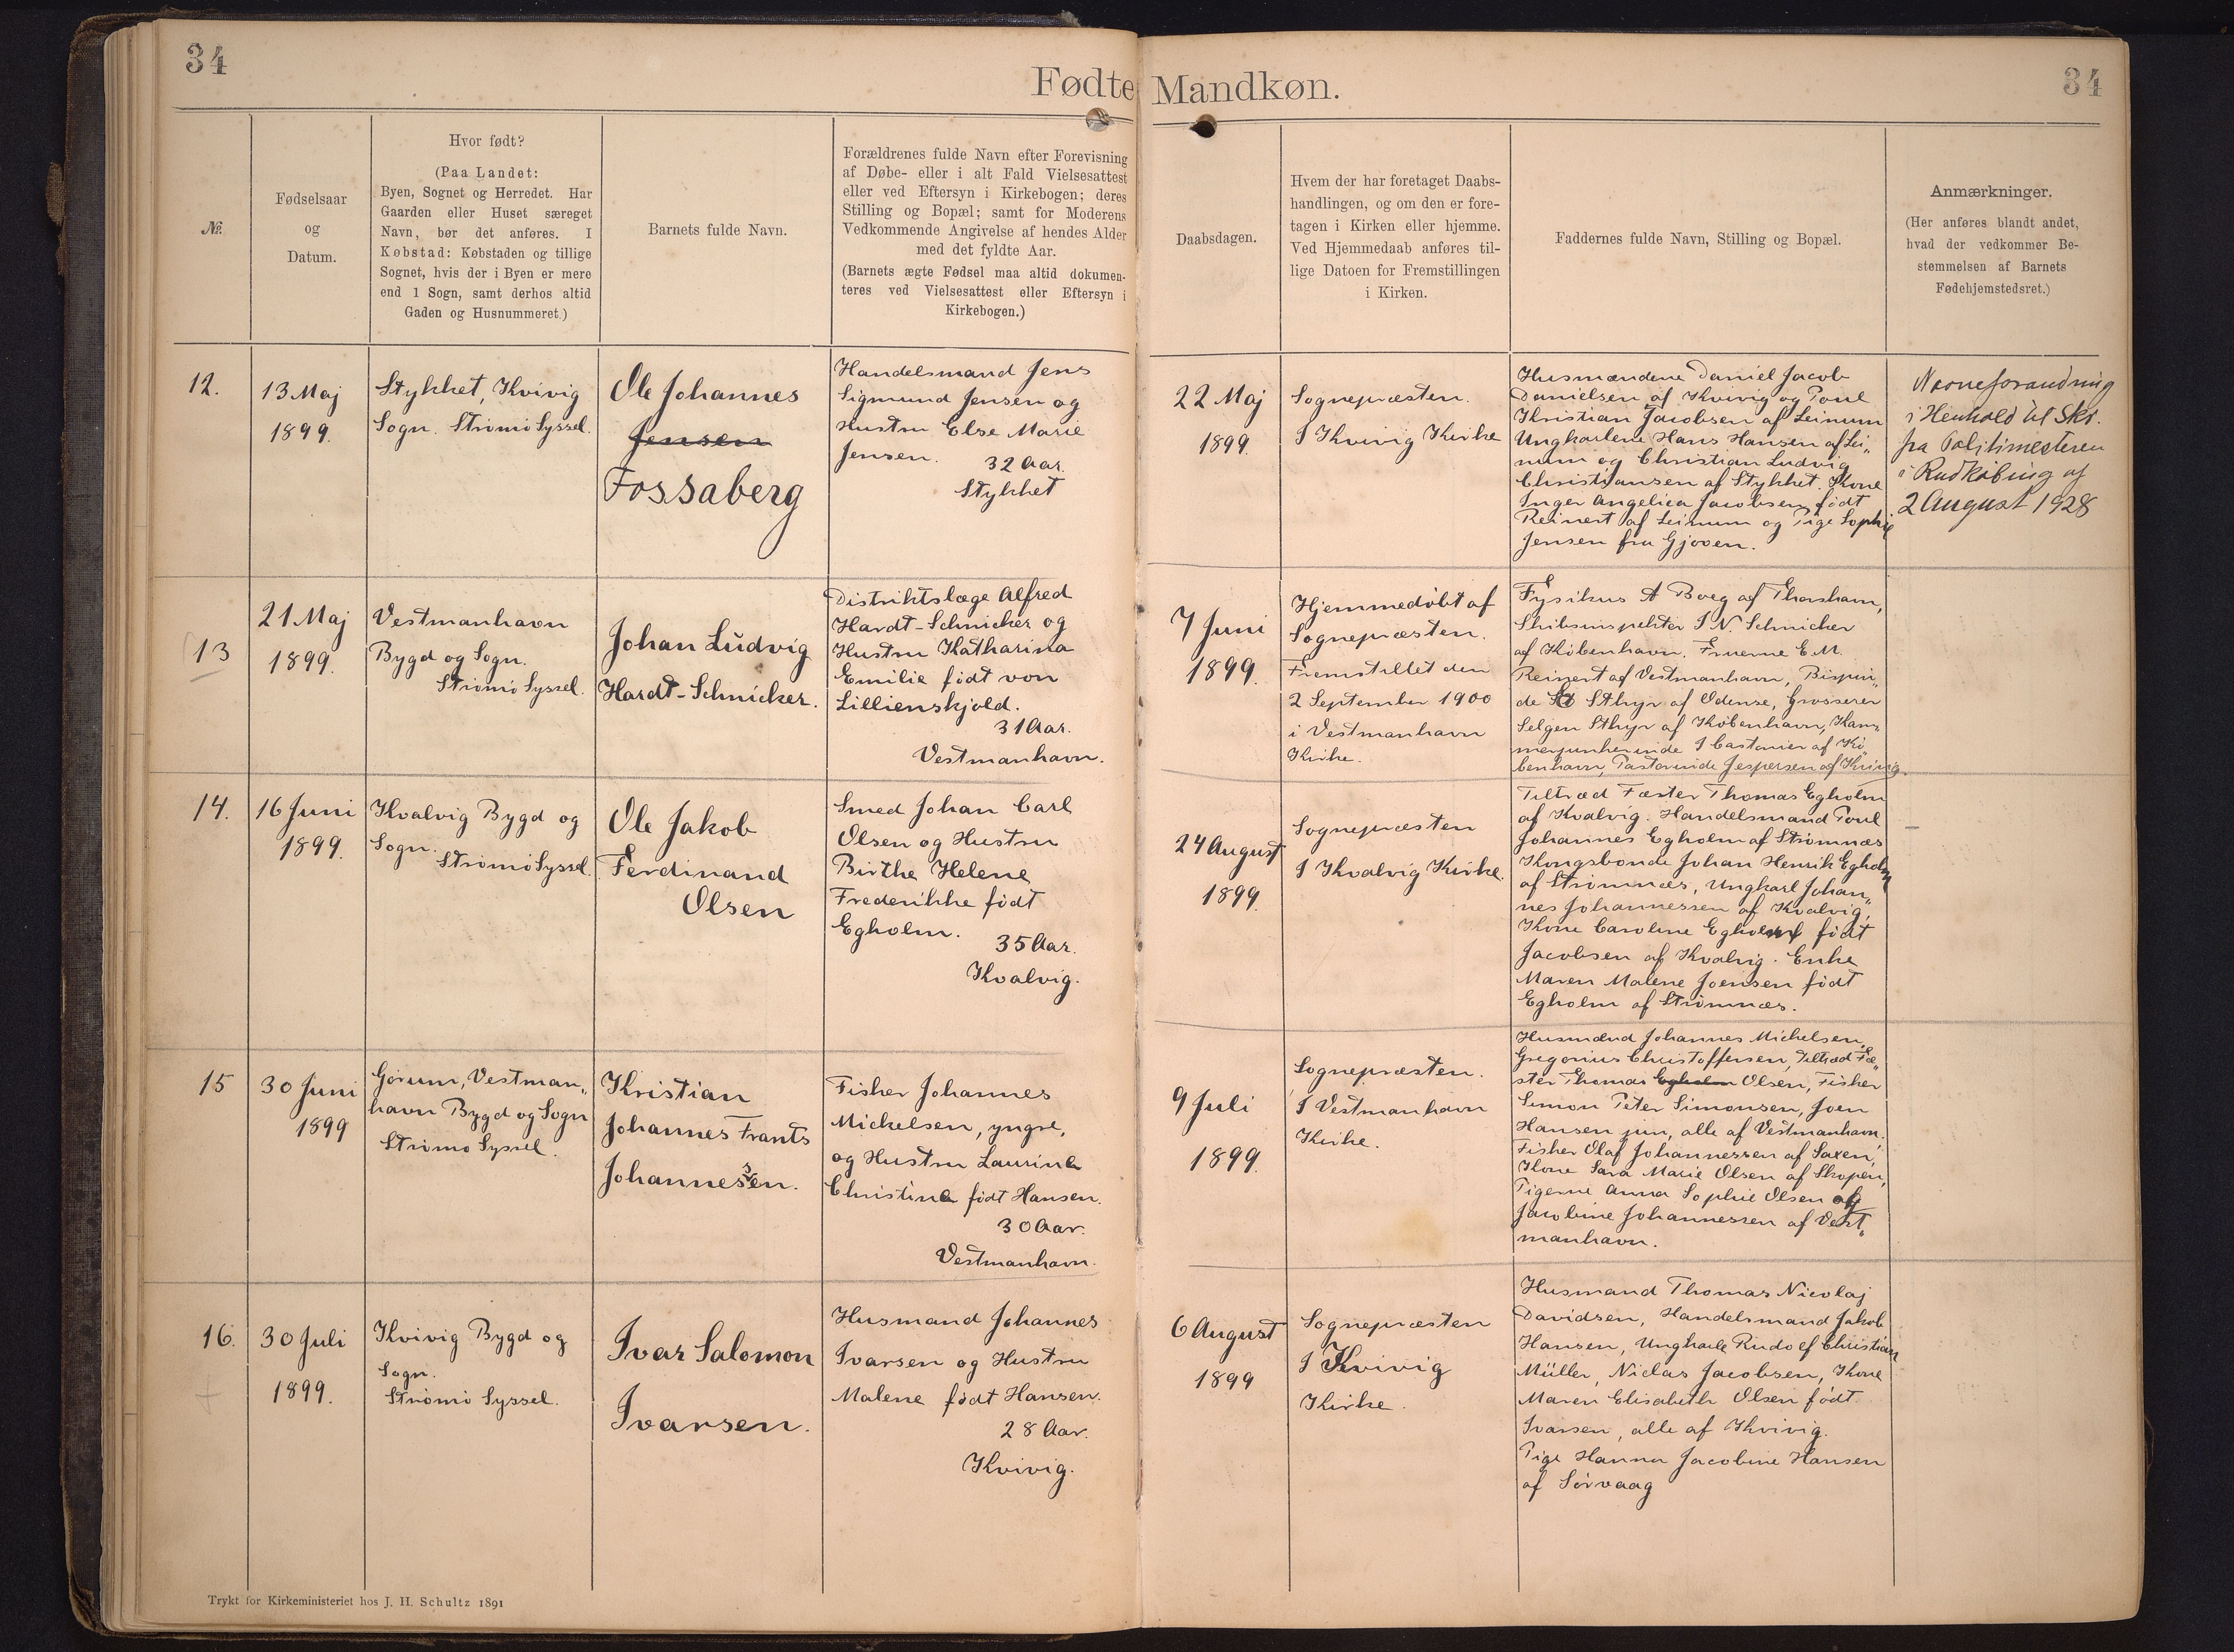 34
34
Fødte Mandkøn.
№
Fødselsaar
og
Datum.
Hvor født?
(Paa Landet:
Byen, Sognet og Herredet. Har
Gaarden eller Huset særeget
Navn, bør det anføres. I
Købstad: Købstaden og tillige
Sognet, hvis der i Byen er mere
end 1 Sogn, samt derhos altid
Gaden og Husnummeret.)
Barnets fulde Navn.
Forældrenes fulde Navn efter Forevisning
af Døbe- eller i alt Fald Vielsesattest
eller ved Eftersyn i Kirkebogen; deres
Stilling og Bopæl; samt for Moderens
Vedkommende Angivelse af hendes Alder
med det fyldte Aar.
(Barnets ægte Fødsel maa altid dokumen-
teres ved Vielsesattest eller Eftersyn i
Kirkebogen.)
Daabsdagen.
Hvem der har foretaget Daabs-
handlingen, og om den er fore-
tagen i Kirken eller hjemme.
Ved Hjemmedaab anføres til-
lige Datoen for Fremstillingen
i Kirken.
Faddernes fulde Navn, Stilling og Bopæl.
Anmærkninger.
(Her anføres blandt andet,
hvad der vedkommer Be-
stemmelsen af Barnets
Fødehjemstedsret.)
12.
13 Maj
1899.
Stykket, Kvivig
Sogn. Strømø Syssel.
Ole Johannes
Jensen
Fossaberg
Handelsmand Jens
Sigmund Jensen og
Hustru Else Marie
Jensen. 32 Aar.
Stykket
22 Maj
1899.
Sognepræsten.
I Kvivig Kirke
Husmændene Daniel Jacob
Danielsen af Kvivig og Poul
Kristian Jacobsen af Leinum
Ungkarlene Hans Hansen af Lei„
num og Christian Ludvig
Christiansen af Stykket. Kone
Inger Angelica Jacobsen født
Reinert af Leinum og Pige Sophie
Jensen fra Gjoven.
Navneforandring
i Henhold til Skr.
fra Politimesteren
i Rudkøbing af
2 August 1928
13
21 Maj
1899.
Vestmanhavn
Bygd og Sogn.
Strømø Syssel.
Johan Ludvig
Hardt-Schnicker.
Distriktslæge Alfred
Hardt-Schnicker og
Hustru Katharina
Emilie født von
Lillienskjold.
31 Aar.
Vestmanhavn.
7 Juni
1899.
Hjemmedøbt af
Sognepræsten.
Fremstillet den
2 September 1900
i Vestmanhavn
Kirke.
Fysikus A Boeg af Thorshavn,
Skibsinspektør I. N. Schnicker
af København, Fruerne E. M.
Reinert af Vestmanhavn, Bispin„
de Sthyr af Odense, Grosserer
Selgen Sthyr af København, Kam„
merjunkerinde I Castonier af Kø„
benhavn, Pastorinde Jespersen af Kvivig.
14.
16 Juni
1899.
Kvalvig Bygd og
Sogn.
Strømø Syssel.
Ole Jakob
Ferdinand
Olsen
Smed Johan Carl
Olsen og Hustru
Birthe Helene
Frederikke født
Egholm.
35 Aar.
Kvalvig.
24 August
1899.
Sognepræsten
I Kvalvig Kirke.
Tiltræd Fæster Thomas Egholm
af Kvalvig. Handelsmand Poul
Johannes Egholm af Strømnæs
Kongsbonde Johan Henrik Egholm
af Strømnæs, Ungkarl Johan„
nes Johannessen af Kvalvig,
Kone Caroline Egholm født
Jacobsen af Kvalvig. Enke
Maren Malene Joensen født
Egholm af Strømnæs.
15
30 Juni
1899
Gørum, Vestman„
havn Bygd og Sogn
Strømø Syssel.
Kristian
Johannes Frants
Johannessen.
Fisker Johannes
Michelsen, yngre,
og Hustru Laurine
Christine født Hansen.
30 Aar.
Vestmanhavn.
9 Juli
1899.
Sognepræsten.
I Vestmanhavn
Kirke.
Husmænd Johannes Michelsen,
Gregorius Christoffersen, Tiltræd Fæ„
ster Thomas Egholm Olsen, Fisker
Simon Peter Simonsen, Joen
Hansen jun, alle af Vestmanhavn.
Fisker Olaf Johannessen af Saxen,
Kone Sara Marie Olsen af Skopen,
Pigerne Anna Sophie Olsen og
Jacobine Johannessen af Vest„
manhavn.
16.
30 Juli
1899.
Kvivig Bygd og
Sogn.
Strømø Syssel.
Ivar Salomon
Ivarsen.
Husmand Johannes
Ivarsen og Hustru
Malene født Hansen.
28 Aar.
Kvivig.
6 August
1899
Sognepræsten
I Kvivig
Kirke.
Husmand Thomas Nicolaj
Davidsen, Handelsmand Jakob
Hansen, Ungkarle Rudolf Christian
Müller, Niclas Jacobsen, Kone
Maren Elisabeth Olsen født
Ivarsen, alle af Kvivig.
Pige Hanna Jacobine Hansen
af Sørvaag
Trykt for Kirkeministeriet hos J. H. Schultz 1891